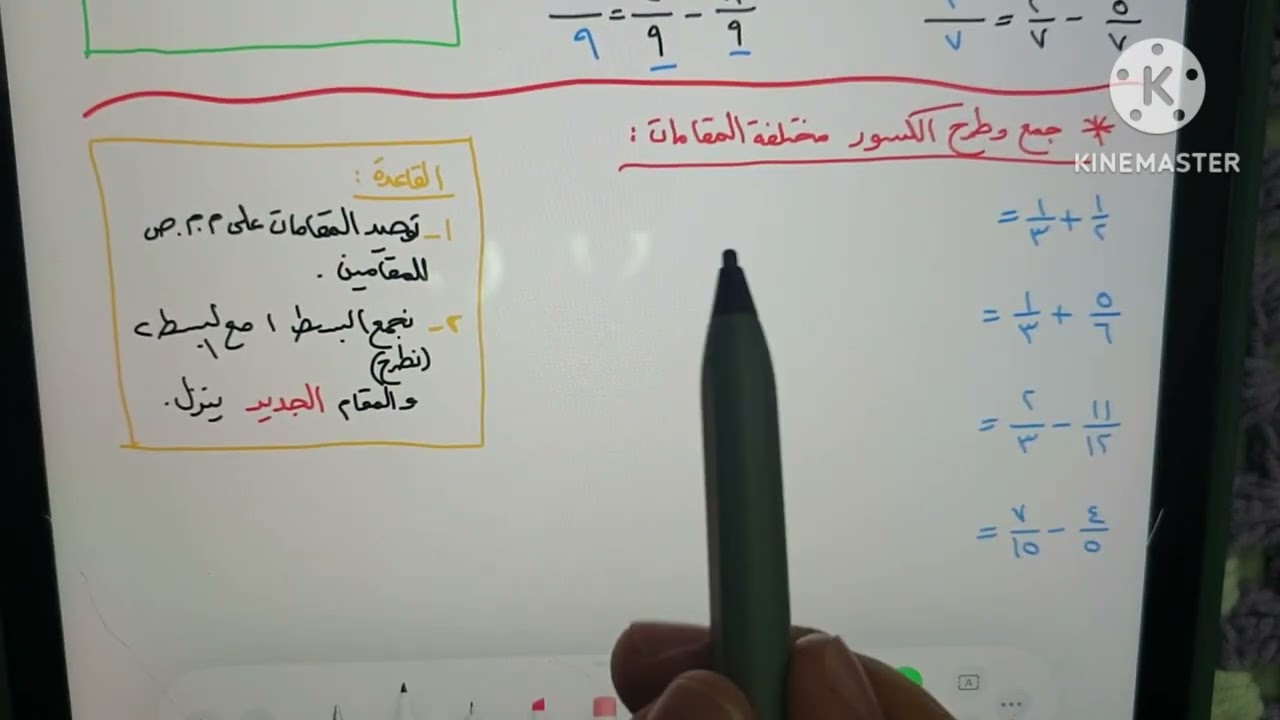 ٥/٧ - ٢/٧ = /٧
/٩ - /٩ = /٩
KINEMASTER
* جمع وطرح الكسور مختلفة المقامات :
١/٢ + ١/٣ =
٥/٦ + ١/٣ =
١١/١٢ - ٢/٣ =
٤/٥ - ٧/١٥ =
القاعدة :
١- توحيد المقامات على م.م.ص
للمقامين .
٢- نجمع البسط ١ مع لبسط ٢
(نطرح)
والمقام الجديد ينزل.